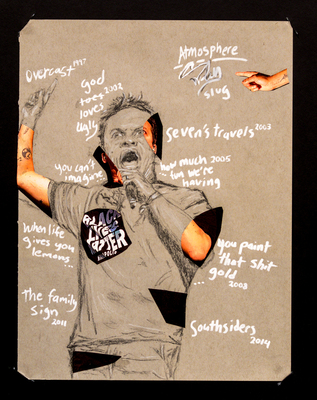 Atmosphere
slug
Overcast 1997
god
loves
ugly
2002
seven's travels 2003
you can't
imagine...
how much 2005
fun we're
having
When life
gives you
lemons...
you paint
that shit
gold
... 2008
the family
sign
2011
Southsiders
2014